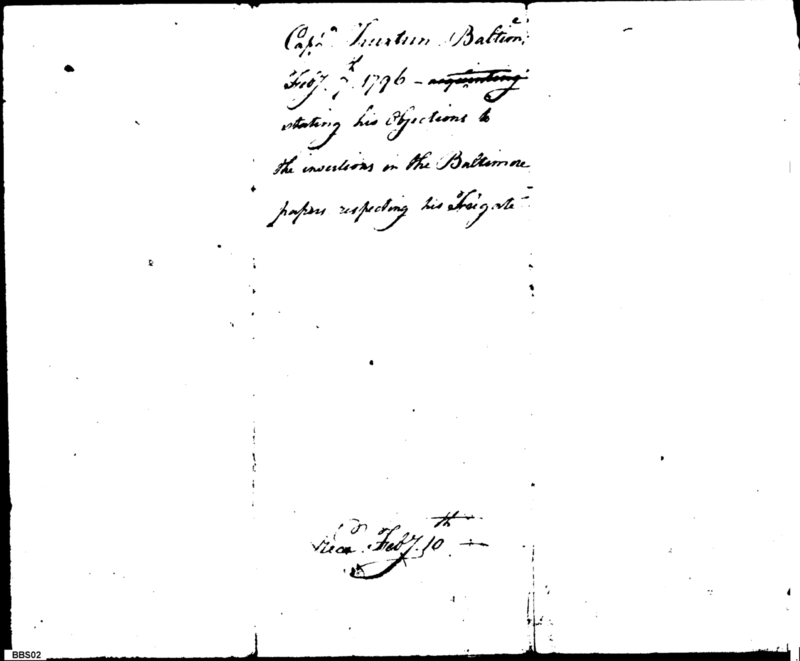 Capt. Truxtun Baltimе.
Feby. 7th. 1796 - acquainting
stating his Objections to
the insertions in the Baltimore
papers respecting his Frigate -
Recd. Feby. 10th
BBS02